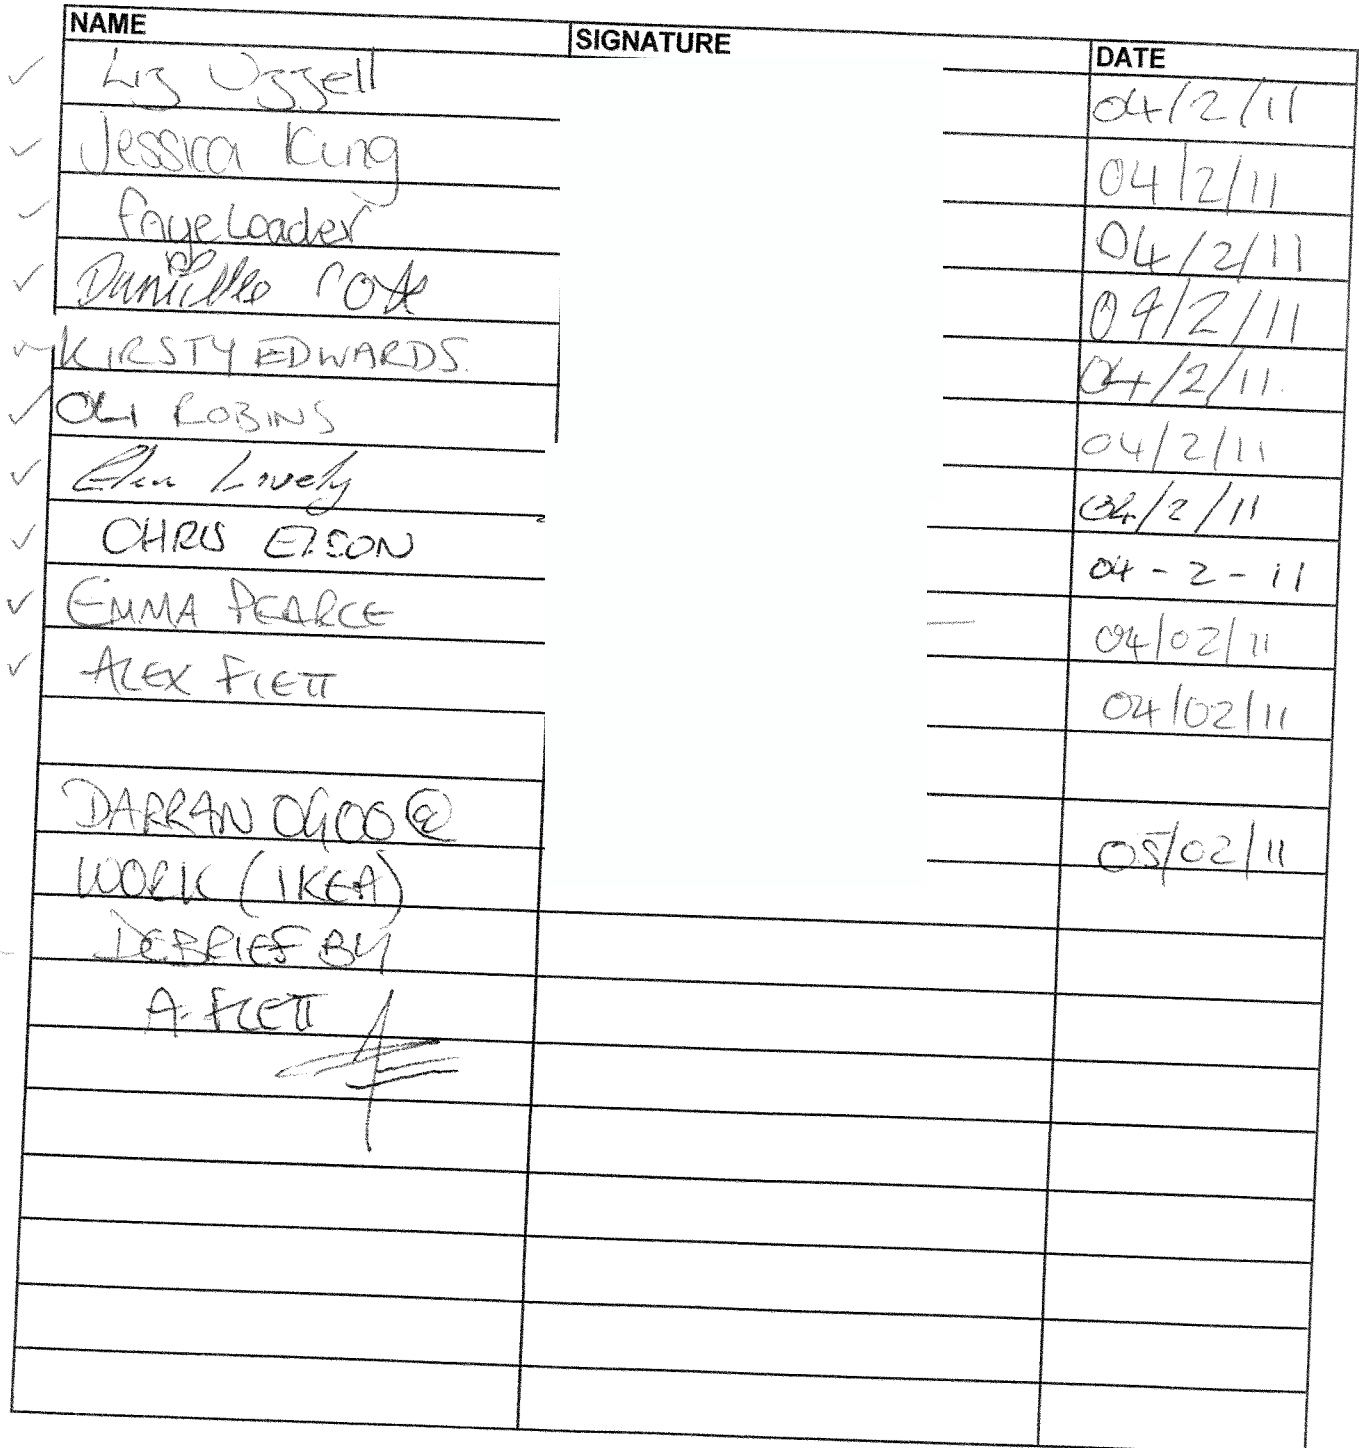 NAME SIGNATURE DATE
✓ Liz Uzzell 04/2/11
✓ Jessica King 04/2/11
✓ Faye Loader 04/2/11
✓ Danielle 04/2/11
✓ KIRSTY EDWARDS. 04/2/11.
✓ OLI ROBINS 04/2/11
✓ Lively 04/2/11
✓ CHRIS 04-2-11
✓ EMMA PEARCE 04/02/11
✓ ALEX FLETT 04/02/11
DARRAN @ 05/02/11
WORK (IKEA)
DEBRIEF BY
A. FLETT